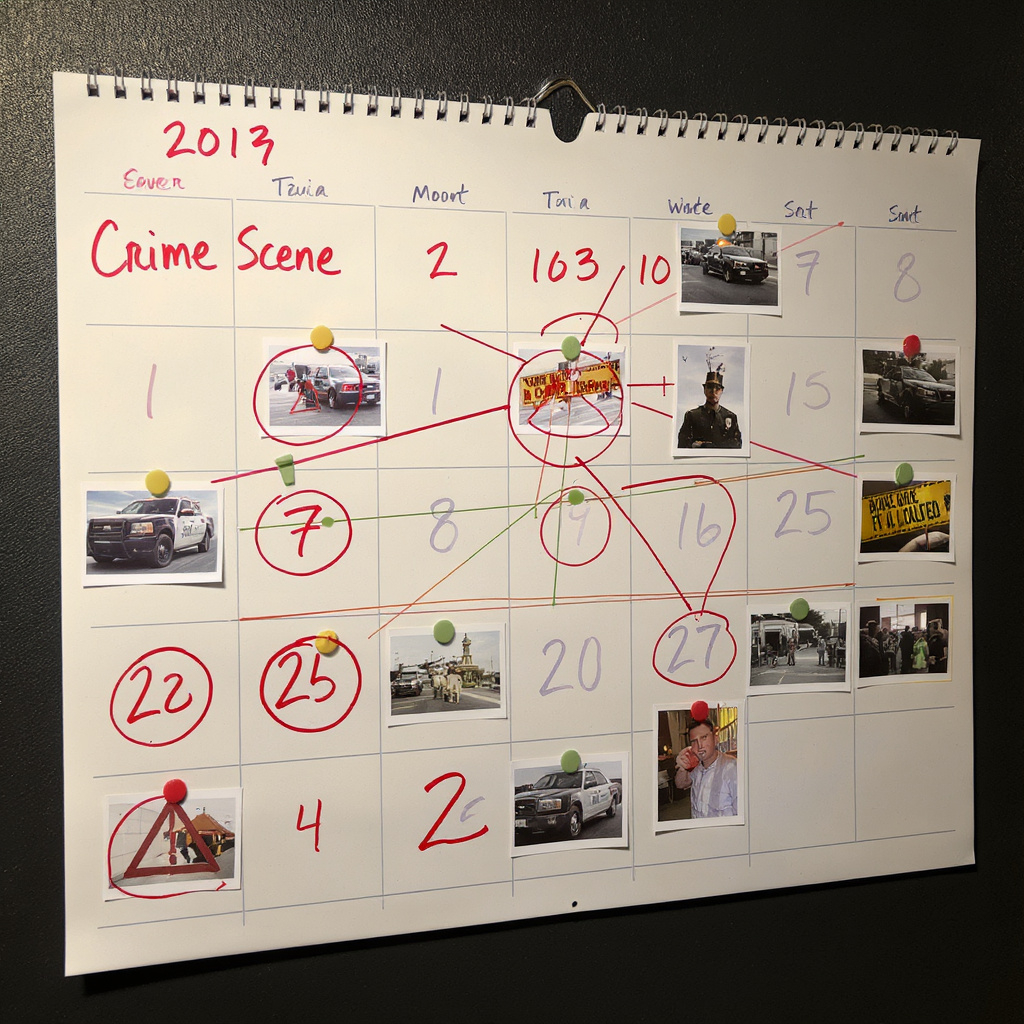 2013
Eaver Tzuia Moort Taria Winte Sat Snrt
Crime Scene 2 103 10 7 8
1 1 15
7 8 9 16 25
22 25 20 27
4 2